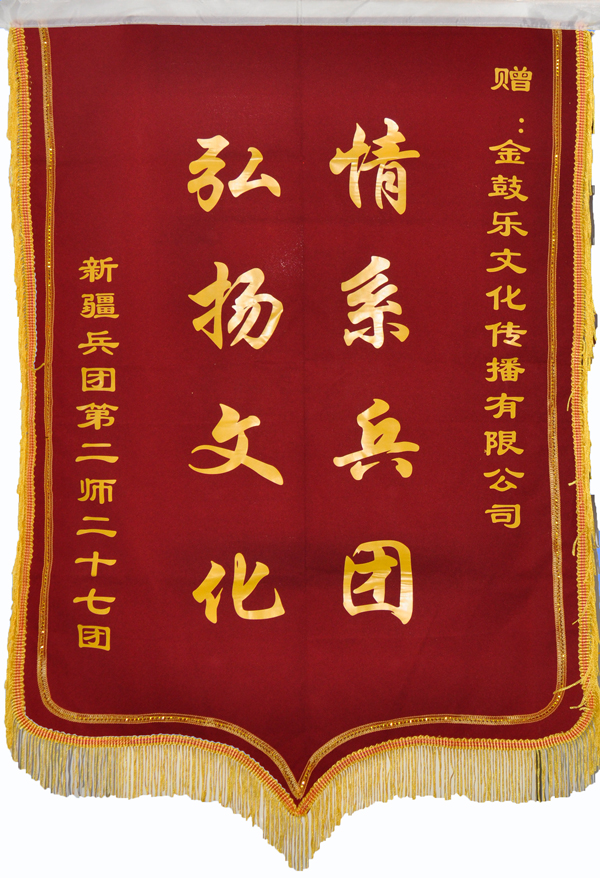 赠：金鼓乐文化传播有限公司
情系兵团
弘扬文化
新疆兵团第二师二十七团